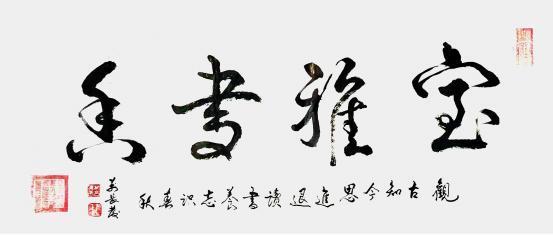 室雅書香
觀古知今思進退讀書養志识春秋